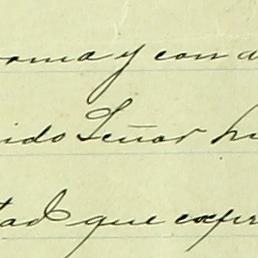 oma y con a
ido Señor h
tad que expr